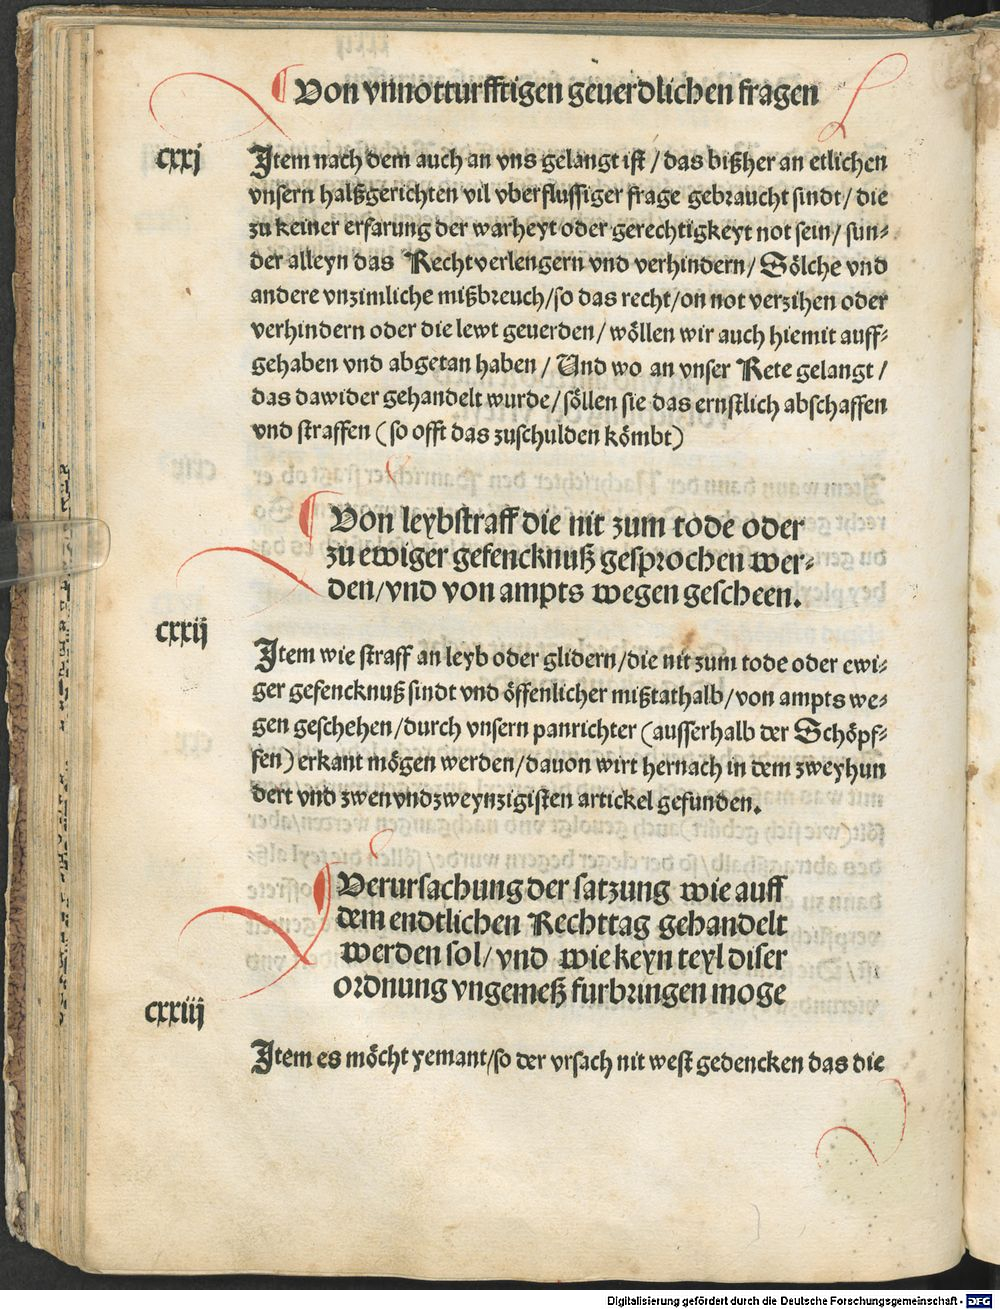 Von vnnotturfftigen geuerdlichen fragen
cxxj
Item nach dem auch an vns gelangt ist / das bißher an etlichen
vnsern halßgerichten vil vberflussiger frage gebraucht sindt / die
zu keiner erfarung der warheyt oder gerechtigkeyt not sein / sun⸗
der alleyn das Recht verlengern vnd verhindern / Sölche vnd
andere vnzimliche mißbreuch / so das recht / on not verzihen oder
verhindern oder die lewt geuerden / wöllen wir auch hiemit auff⸗
gehaben vnd abgetan haben / Und wo an vnser Rete gelangt /
das dawider gehandelt wurde / söllen sie das ernstlich abschaffen
vnd straffen ( so offt das zuschulden kömbt )
Von leybstraff die nit zum tode oder
zu ewiger gefencknuß gesprochen wer⸗
den / vnd von ampts wegen gescheen.
cxxij
Item wie straff an leyb oder glidern / die nit zum tode oder ewi⸗
ger gefencknuß sindt vnd öffenlicher mißtathalb / von ampts we⸗
gen geschehen / durch vnsern panrichter ( ausserhalb der Schöpf⸗
fen ) erkant mögen werden / dauon wirt hernach in dem zweyhun
dert vnd zwenvndzweynzigisten artickel gefunden.
Verursachung der satzung wie auff
dem endtlichen Rechttag gehandelt
werden sol / vnd wie keyn teyl diser
ordnung vngemeß furbringen moge
cxxiij
Item es möcht yemant / so der vrsach nit west gedencken das die
Digitalisierung gefördert durch die Deutsche Forschungsgemeinschaft - DFG